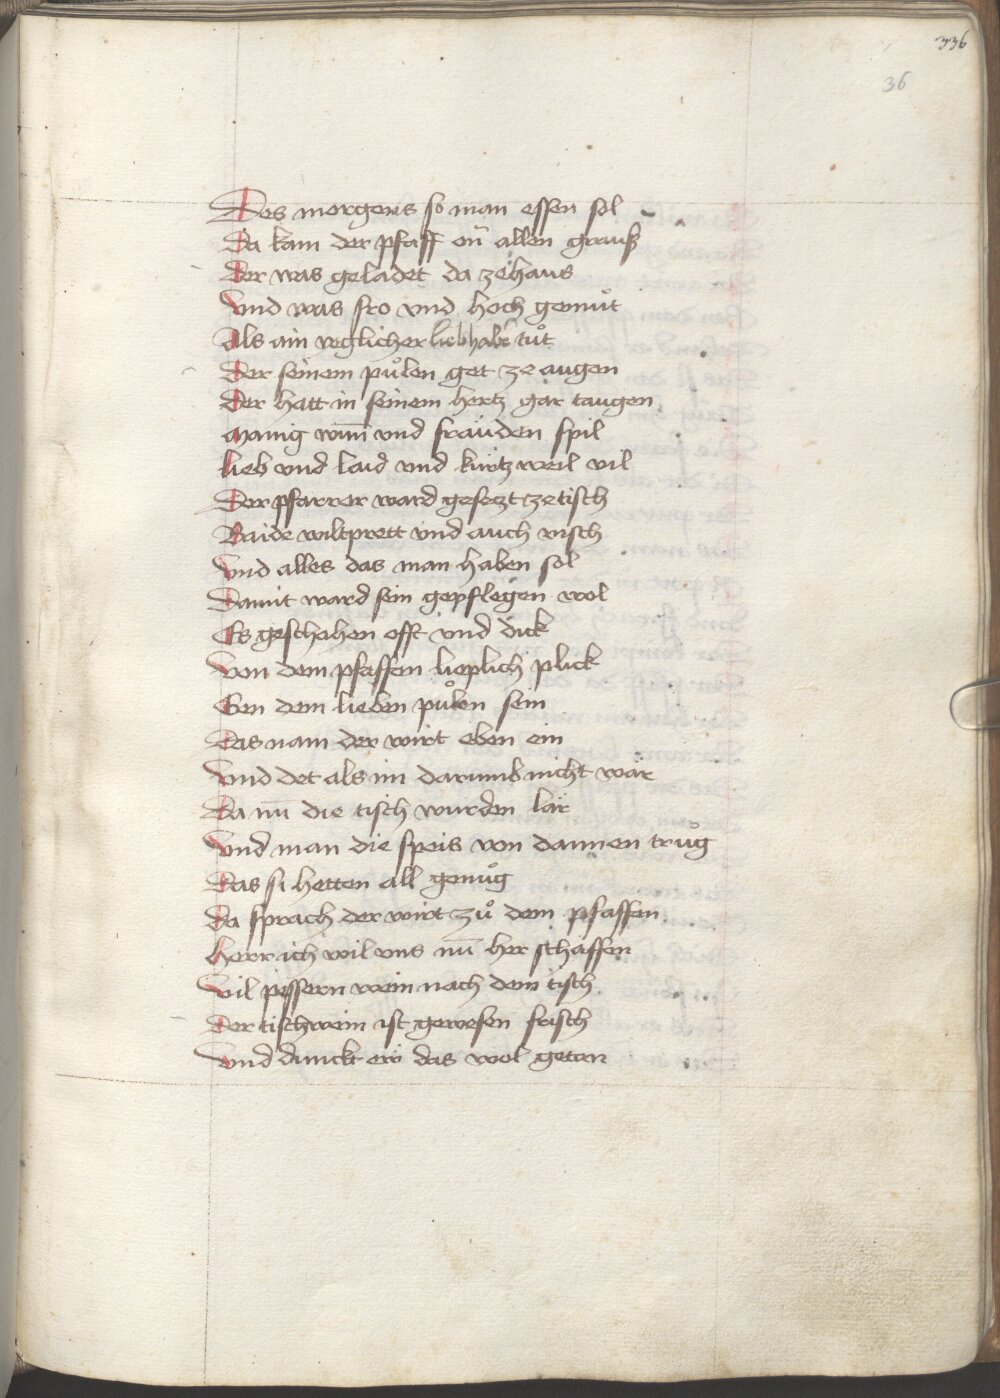 336
36
Des morgens so man essen sol
Da kam der pfaff on allen grauß
Der was geladet da zehaus
Vnd was fro vnd hoch gemuͦt
Als ain yeglicher liebhaber tuͦt
Der seinem puͦlen get ze augen
Der hatt in seinem hertz gar taugen
Manig wun̄ vnd fräuden spil
Lieb vnd laid vnd kurtzweil vil
Der pfarrer ward gesezt zetisch
Baide wiltprett vnd auch visch
Vnd alles das man haben sol
Damit ward sein gepflegen wol
Es geschahen offt vnd dick
Von dem pfaffen lieplich plick
Gen dem lieben puͦlen sein
Das nam der wirt eben ein
Vnd det als im darumb nicht wär
Da nun̄ die tisch wurden lär
Vnd man die speis von dannen truͦg
Das si hetten all genuͦg
Da sprach der wirt zuͦ dem pfaffen
Herr ich wil vns nun̄ her schaffen
Vil pessern wein nach dem tisch
Der tischwein ist gewesen frisch
Vnd dunckt ew das wol getan